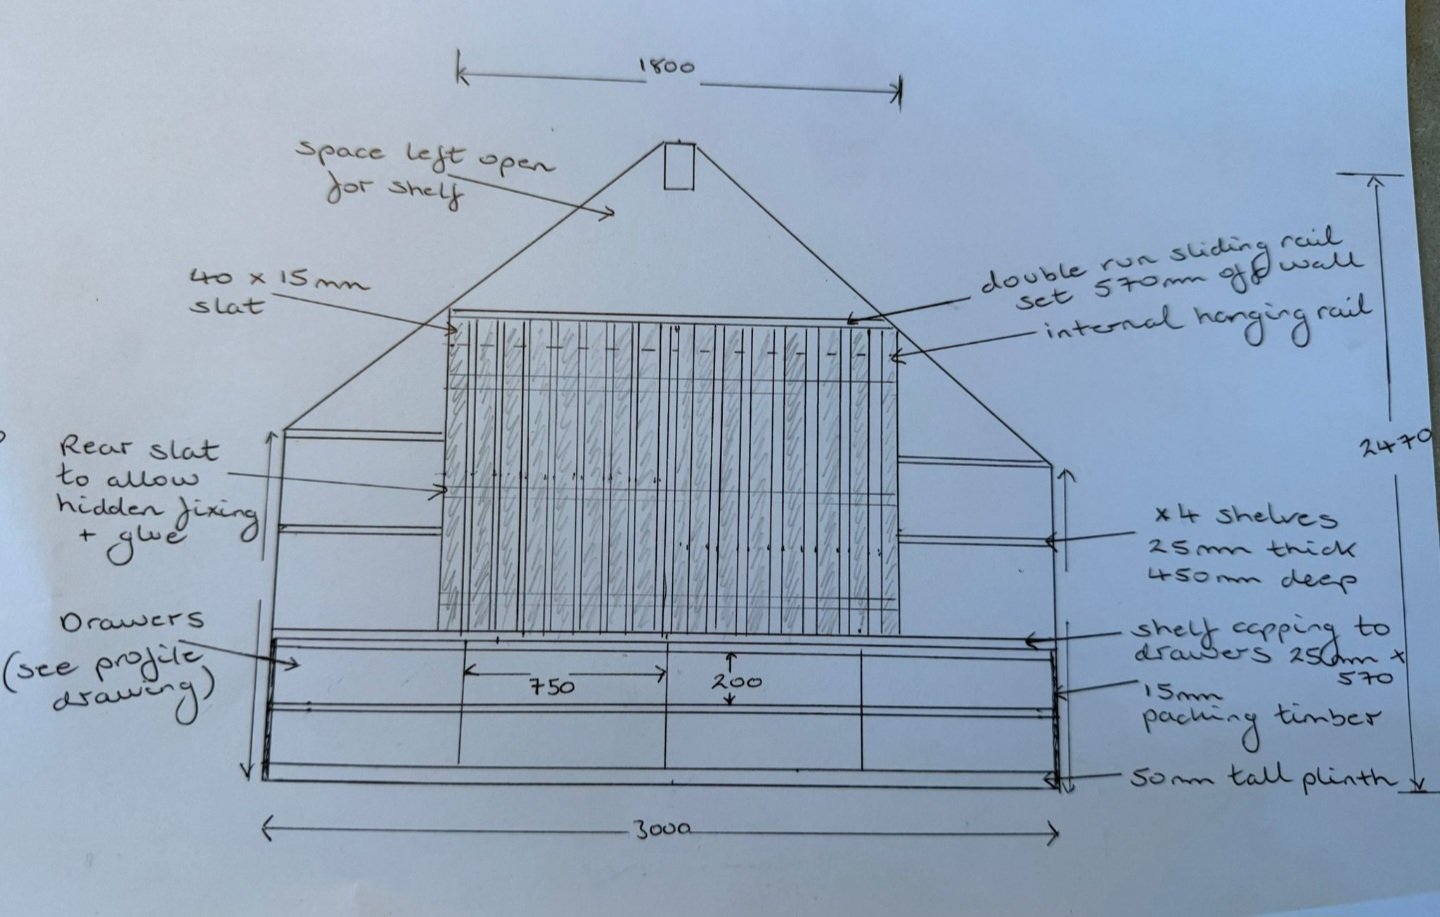 1800
space left open
for shelf
40 x 15mm
slat
double run sliding rail
set 570mm off wall
internal hanging rail
2470
Rear slat
to allow
hidden fixing
+ glue
x4 shelves
25mm thick
450mm deep
Drawers
(see profile
drawing)
shelf capping to
drawers 25mm x
570
750
200
15mm
packing timber
50mm tall plinth
3000